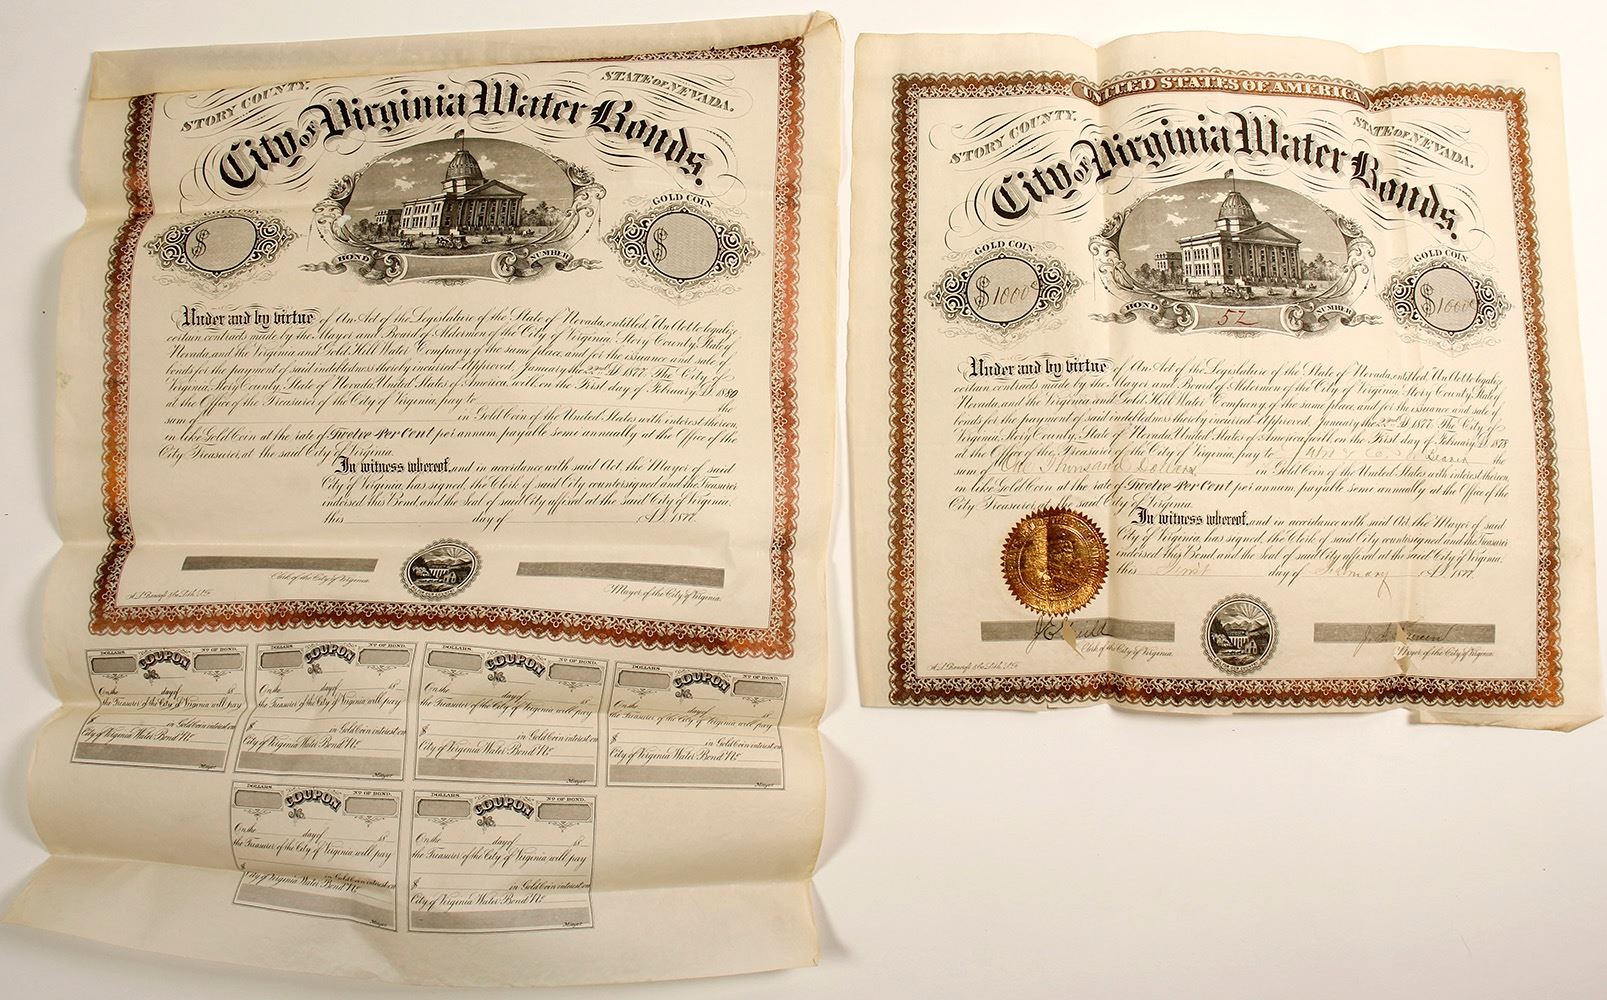 STORY COUNTY.
STATE OF NEVADA.
City of Virginia Water Bonds.
GOLD COIN
$
$
BOND NUMBER
Under and by virtue of An Act of the Legislature of the State of Nevada, entitled "An Act to legalize
certain contracts made by the Mayor and Board of Aldermen of the City of Virginia, Story County, State of
Nevada, and the Virginia and Gold Hill Water Company of the same place, and for the issuance and sale of
bonds for the payment of said indebtedness thereby incurred" Approved, January the 22nd A.D. 1877. The City of
Virginia, Story County, State of Nevada, United States of America, will on the First day of February A.D. 1880
at the Office of the Treasurer of the City of Virginia, pay to the
sum of in Gold Coin of the United States with interest thereon,
in like Gold Coin at the rate of Twelve Per Cent per annum, payable semi annually at the Office of the
City Treasurer, at the said City of Virginia.
In witness whereof, and in accordance with said Act, the Mayor of said
City of Virginia, has signed, the Clerk of said City countersigned and the Treasurer
indorsed this Bond, and the Seal of said City affixed at the said City of Virginia,
this day of A.D. 1877.
Clerk of the City of Virginia.
Mayor of the City of Virginia.
A.L. Bancroft & Co. Lith. S.F.
DOLLARS. COUPON No. NO OF BOND.
On the day of 18
the Treasurer of the City of Virginia will pay
$ in Gold Coin interest on
City of Virginia Water Bond No.
Mayor
DOLLARS. COUPON No. NO OF BOND.
On the day of 18
the Treasurer of the City of Virginia will pay
$ in Gold Coin interest on
City of Virginia Water Bond No.
Mayor
DOLLARS. COUPON No. NO OF BOND.
On the day of 18
the Treasurer of the City of Virginia will pay
$ in Gold Coin interest on
City of Virginia Water Bond No.
Mayor
DOLLARS. COUPON No. NO OF BOND.
On the day of 18
the Treasurer of the City of Virginia will pay
$ in Gold Coin interest on
City of Virginia Water Bond No.
Mayor
DOLLARS. COUPON No. NO OF BOND.
On the day of 18
the Treasurer of the City of Virginia will pay
$ in Gold Coin interest on
City of Virginia Water Bond No.
Mayor
DOLLARS. COUPON No. NO OF BOND.
On the day of 18
the Treasurer of the City of Virginia will pay
$ in Gold Coin interest on
City of Virginia Water Bond No.
Mayor
UNITED STATES OF AMERICA
STORY COUNTY,
STATE OF NEVADA.
City of Virginia Water Bonds.
GOLD COIN
GOLD COIN
$1000
$1000
BOND 52 NUMBER
Under and by virtue of An Act of the Legislature of the State of Nevada, entitled "An Act to legalize
certain contracts made by the Mayor and Board of Aldermen of the City of Virginia, Story County, State of
Nevada, and the Virginia and Gold Hill Water Company of the same place, and for the issuance and sale of
bonds for the payment of said indebtedness thereby incurred" Approved, January the 22nd A.D. 1877. The City of
Virginia, Story County, State of Nevada, United States of America, will on the First day of February A.D. 1878
at the Office of the Treasurer of the City of Virginia, pay to Bearer the
sum of One Thousand Dollars in Gold Coin of the United States with interest thereon,
in like Gold Coin at the rate of Twelve Per Cent per annum, payable semi annually at the Office of the
City Treasurer, at the said City of Virginia.
In witness whereof, and in accordance with said Act, the Mayor of said
City of Virginia, has signed, the Clerk of said City countersigned and the Treasurer
indorsed this Bond, and the Seal of said City affixed at the said City of Virginia,
this First day of February A.D. 1877.
Clerk of the City of Virginia.
Mayor of the City of Virginia.
A.L. Bancroft & Co. Lith. S.F.